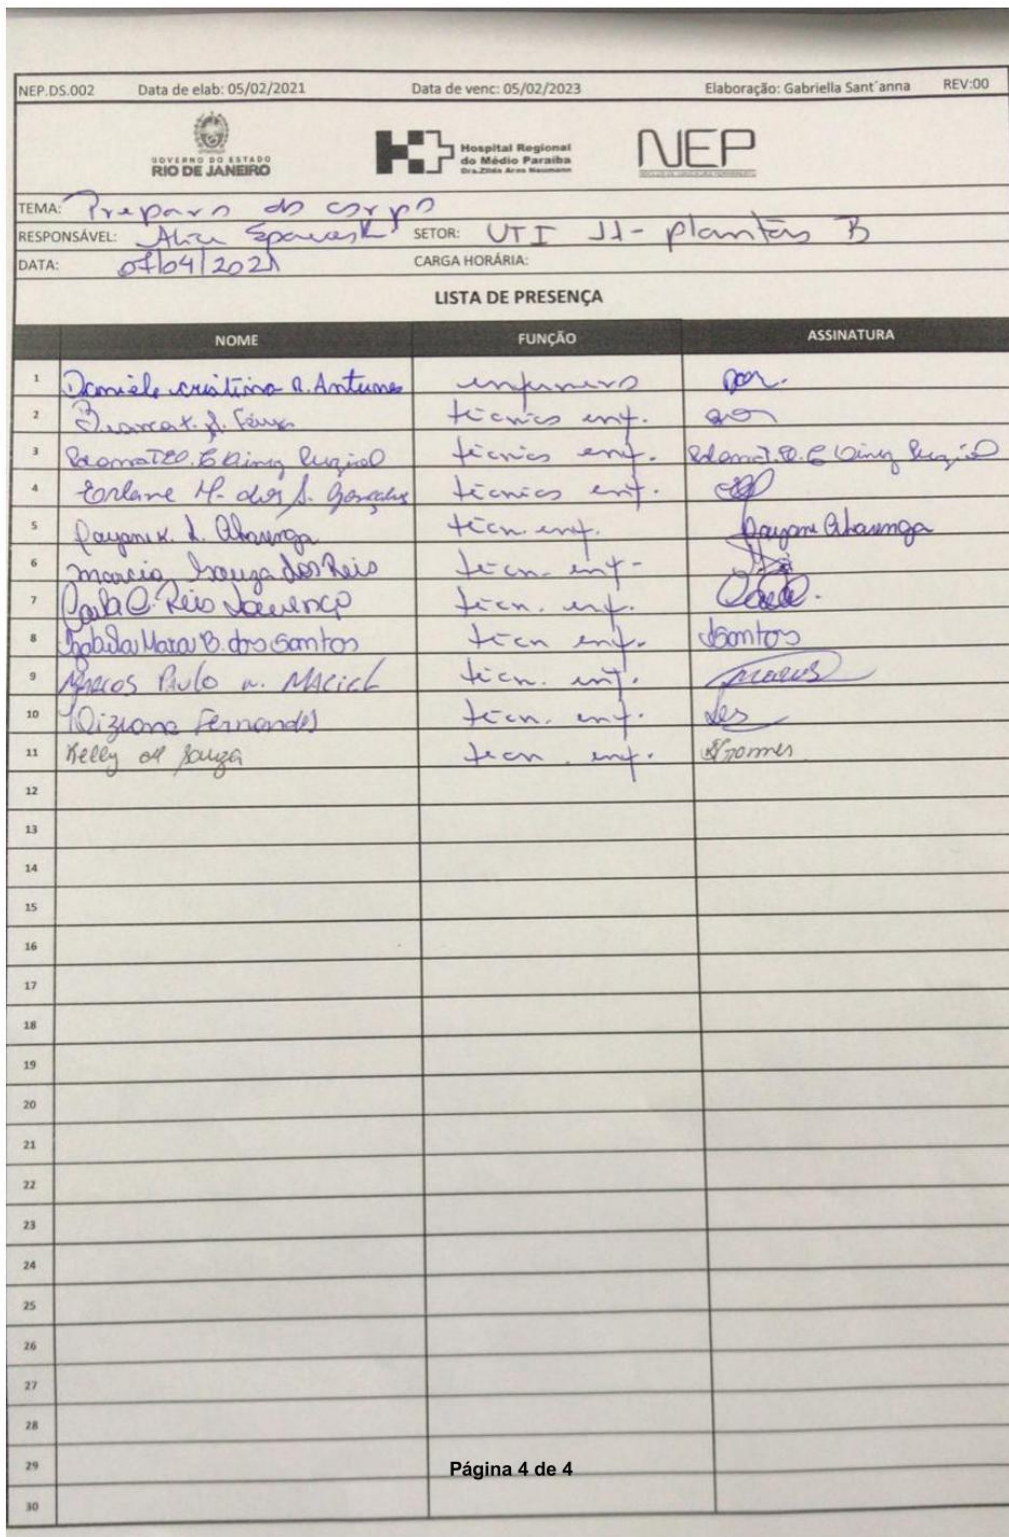 NEP.DS.002 Data de elab: 05/02/2021 Data de venc: 05/02/2023 Elaboração: Gabriella Sant´anna REV:00
GOVERNO DO ESTADO
RIO DE JANEIRO
Hospital Regional
do Médio Paraíba
Dra.Zilda Arns Neumann
NEP
TEMA: Preparo do corpo
RESPONSÁVEL: SETOR: UTI 11- plantão B
DATA: 07/04/2021 CARGA HORÁRIA:
LISTA DE PRESENÇA
NOME FUNÇÃO ASSINATURA
1 Daniele cristina R. Antunes enfermeiro
2 técnico enf.
3 técnico enf.
4 técnico enf.
5 técn. enf.
6 marcia Souza dos Reis técn. enf.
7 Carla C. Reis Lourenço técn. enf.
8 Izabela Mara B. dos Santos técn enf. dSantos
9 Marcos Paulo n. Maciel técn. enf. Marcos
10 Fernandes técn. enf.
11 Kelly de Souza tecn. enf.
12
13
14
15
16
17
18
19
20
21
22
23
24
25
26
27
28
29 Página 4 de 4
30